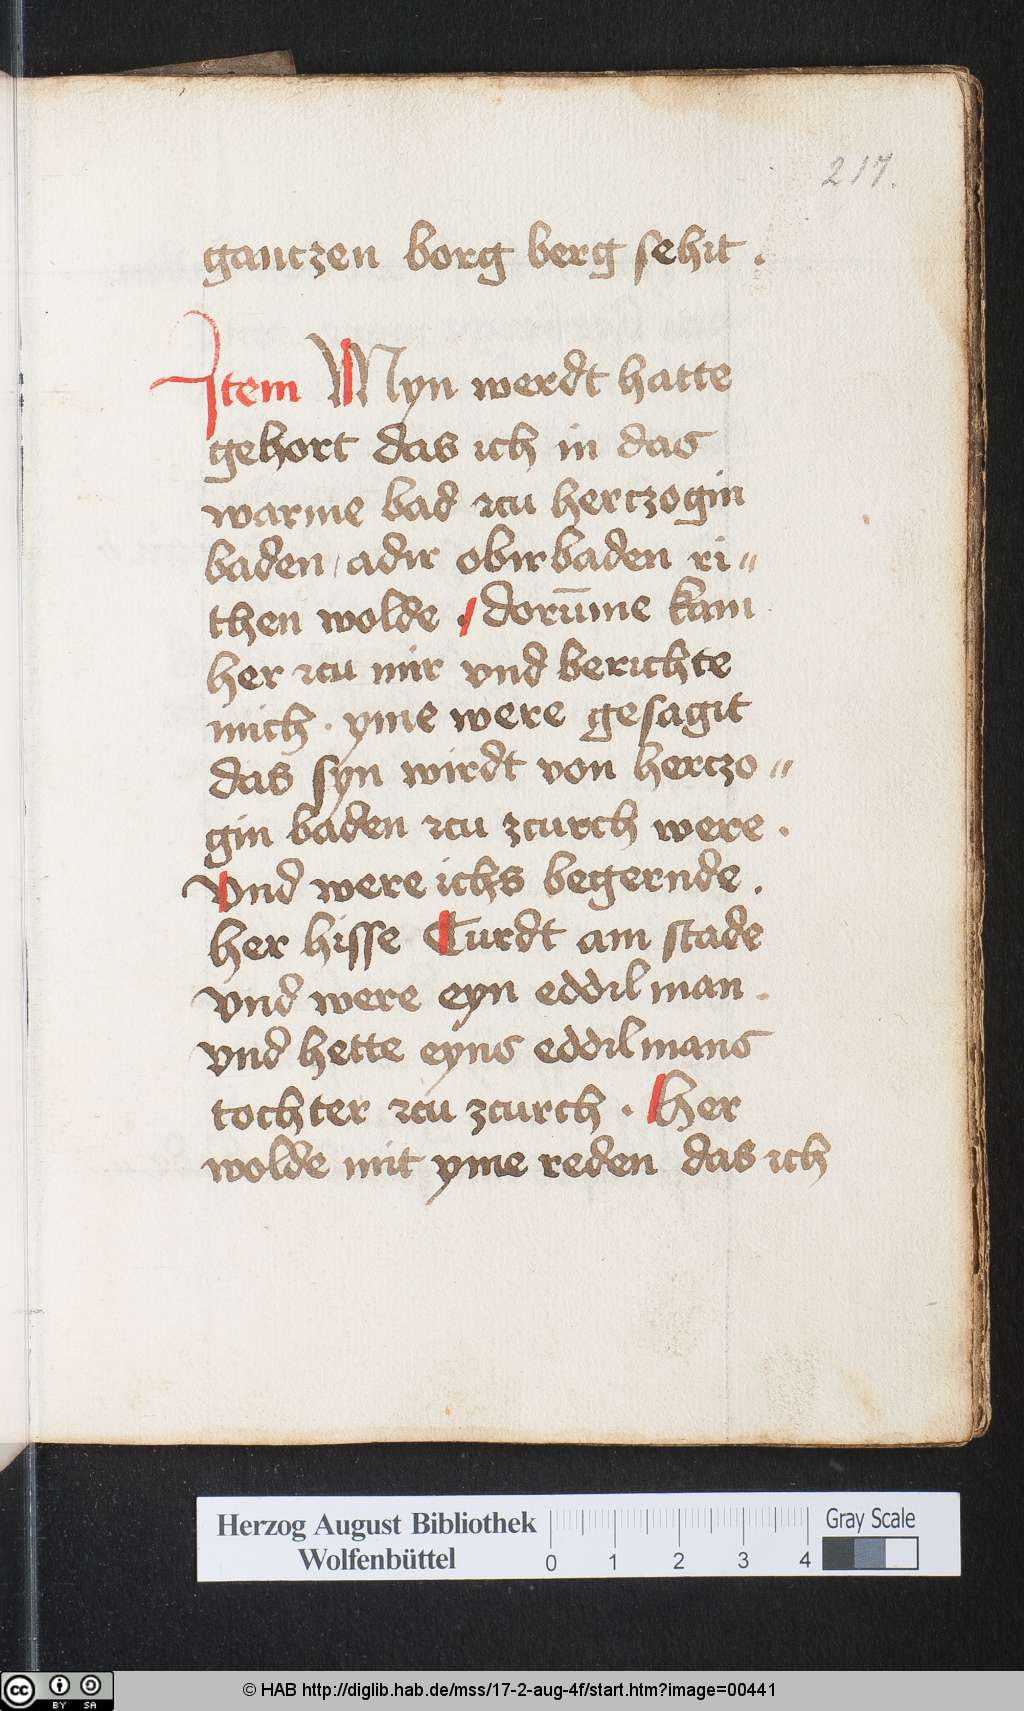 217.
ganczen borg berg sehit .
Item Myn werdt hatte
gehort das ich in das
warme bad zcu herczogin
baden / adir obir baden ri〃
then wolde . dorūme kam
her zcu mir vnd berichte
mich . yme were gesagit
das syn wirdt von herczo〃
gin baden zcu zcurch were .
Vnd were ichs begernde .
her hisse Curdt am stade
vnd were eyn eddilman .
vnd hette eyns eddilmans
tochter zcu zcurch . Her
wolde mit yme reden das ich
Herzog August Bibliothek
Wolfenbüttel
0 1 2 3 4
Gray Scale
cc BY SA
© HAB http://diglib.hab.de/mss/17-2-aug-4f/start.htm?image=00441